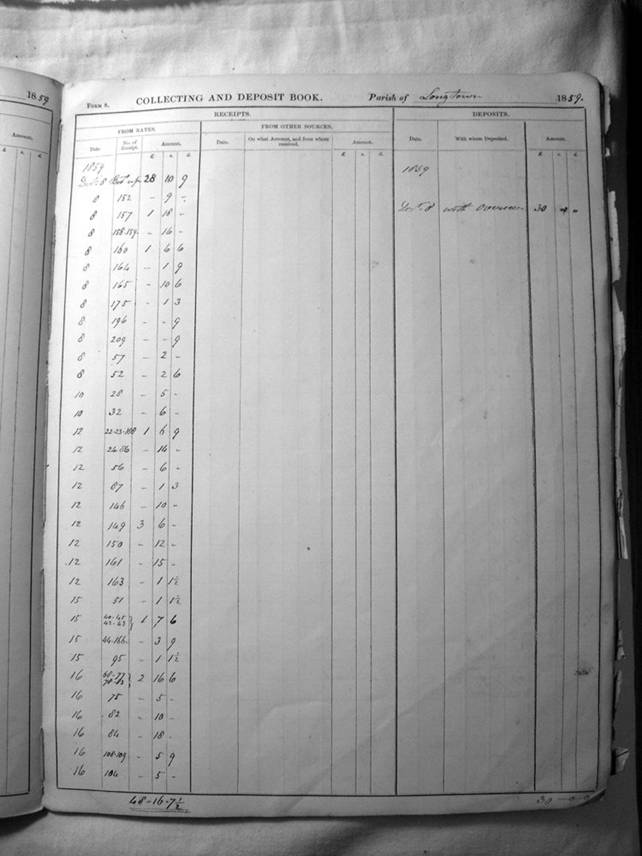 1859
Amount.
£ s. d.
FORM 8. COLLECTING AND DEPOSIT BOOK. Parish of Longtown 1859.
RECEIPTS. DEPOSITS.
FROM RATES. FROM OTHER SOURCES.
Date No. of Receipt. Amount. Date. On what Account, and from whom received. Amount. Date. With whom Deposited. Amount.
£ s. d. £ s. d. £ s. d.
1859 1859
8 28 10 9
8 152 - 9 -
8 157 1 18 - 8 with Overseer 30 - -
8 158-159 - 16 -
8 160 1 6 6
8 164 - 1 9
8 165 - 10 6
8 175 - 1 3
8 196 - - 9
8 209 - - 9
8 57 - 2 -
8 52 - 2 6
10 28 - 5 -
10 32 - 6 -
12 1 6 9
12 - 14 -
12 56 - 6 -
12 87 - 1 3
12 146 - 10 -
12 149 3 6 -
12 150 - 12 -
12 161 - 15 -
12 163 - 1 1½
15 51 - 1 1½
15 1 7 6
15 44-166 - 3 9
15 95 - 1 1½
16 2 16 6
16 75 - 5 -
16 82 - 10 -
16 84 - 18 -
16 108-109 - 5 9
16 104 - 5 -
48-16-7½ 30-0-0